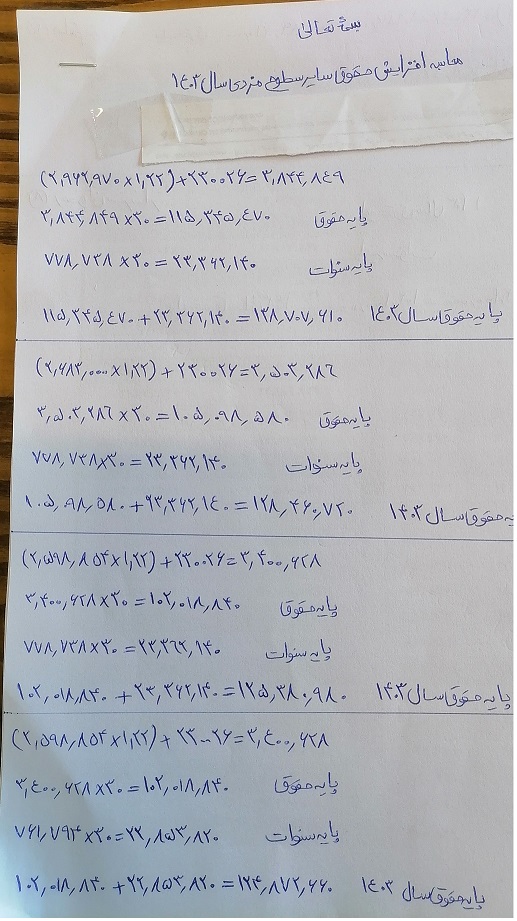 بسمه تعالی
محاسبه افزایش حقوق سایر سطوح مزدی سال ۱۴۰۳
(۲,۹۶۲,۹۷۰ × ۱,۲۲) + ۲۳۰۰۲۶ = ۳,۸۴۴,۸۴۹
۳,۸۴۴,۸۴۹ × ۳۰ = ۱۱۵,۳۴۵,۴۷۰ پایه حقوق
۷۷۸,۷۳۸ × ۳۰ = ۲۳,۳۶۲,۱۴۰ پایه سنوات
۱۱۵,۳۴۵,۴۷۰ + ۲۳,۳۶۲,۱۴۰ = ۱۳۸,۷۰۷,۶۱۰ پایه حقوق سال ۱۴۰۳
(۲,۶۸۳,۰۰۰ × ۱,۲۲) + ۲۳۰۰۲۶ = ۳,۵۰۳,۲۸۶
۳,۵۰۳,۲۸۶ × ۳۰ = ۱۰۵,۰۹۸,۵۸۰ پایه حقوق
۷۷۸,۷۳۸ × ۳۰ = ۲۳,۳۶۲,۱۴۰ پایه سنوات
۱۰۵,۰۹۸,۵۸۰ + ۲۳,۳۶۲,۱۴۰ = ۱۲۸,۴۶۰,۷۲۰ حقوق سال ۱۴۰۳
(۲,۵۹۸,۸۵۴ × ۱,۲۲) + ۲۳۰۰۲۶ = ۳,۴۰۰,۶۲۸
۳,۴۰۰,۶۲۸ × ۳۰ = ۱۰۲,۰۱۸,۸۴۰ پایه حقوق
۷۷۸,۷۳۸ × ۳۰ = ۲۳,۳۶۲,۱۴۰ پایه سنوات
۱۰۲,۰۱۸,۸۴۰ + ۲۳,۳۶۲,۱۴۰ = ۱۲۵,۳۸۰,۹۸۰ پایه حقوق سال ۱۴۰۳
(۲,۵۹۸,۸۵۴ × ۱,۲۲) + ۲۳۰۰۲۶ = ۳,۴۰۰,۶۲۸
۳,۴۰۰,۶۲۸ × ۳۰ = ۱۰۲,۰۱۸,۸۴۰ پایه حقوق
۷۶۱,۷۹۴ × ۳۰ = ۲۲,۸۵۳,۸۲۰ پایه سنوات
۱۰۲,۰۱۸,۸۴۰ + ۲۲,۸۵۳,۸۲۰ = ۱۲۴,۸۷۲,۶۶۰ پایه حقوق سال ۱۴۰۳